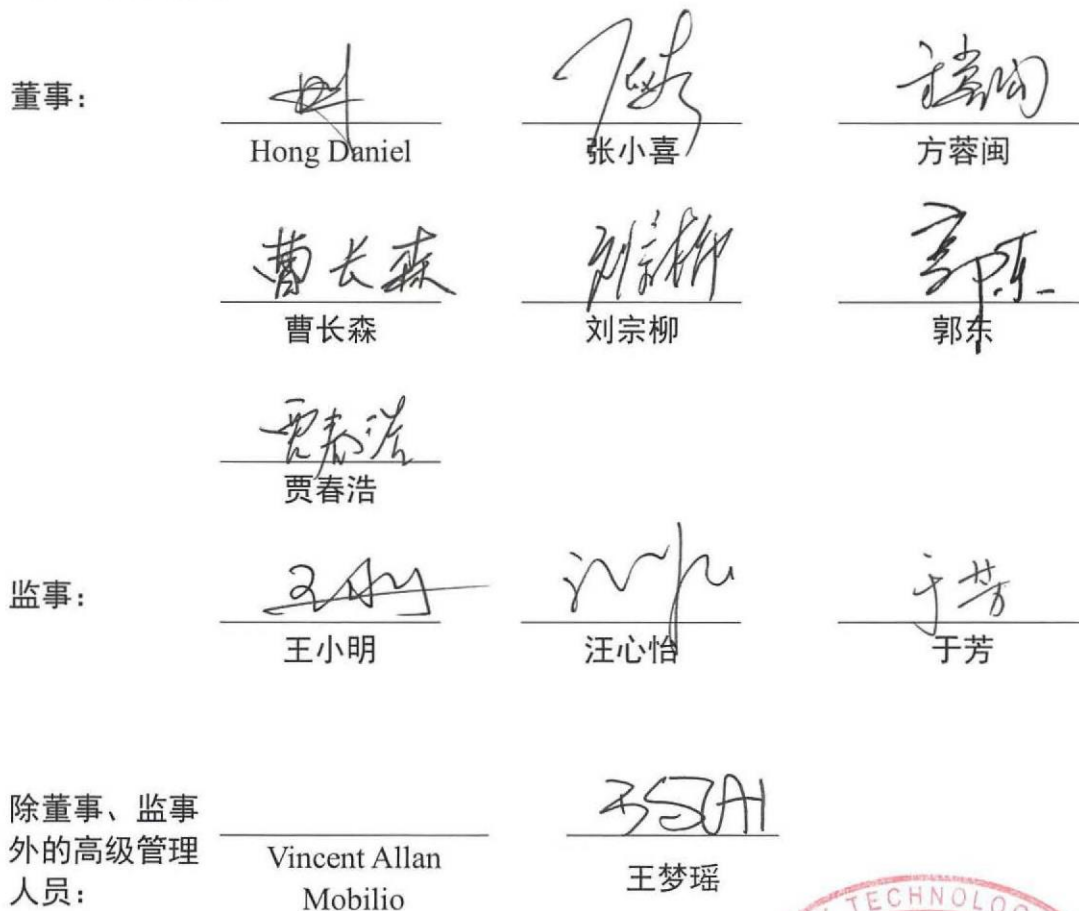 董事：
Hong Daniel 张小喜 方蓉闽
曹长森 刘宗柳 郭东
曹长森 刘宗柳 郭东
贾春浩
贾春浩
监事：
王小明 汪心怡 于芳
于芳
除董事、监事
外的高级管理
人员：
Vincent Allan
Mobilio
王梦瑶
TECHNOLO